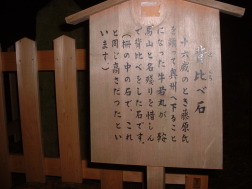 背比べ石
十六歳のとき藤原氏
を頼って奥州へ下ること
になった牛若丸が鞍
馬山と名残りを惜しん
で背比べをした石です。
(柵の中の石で、これ
と同じ高さだったとい
います)